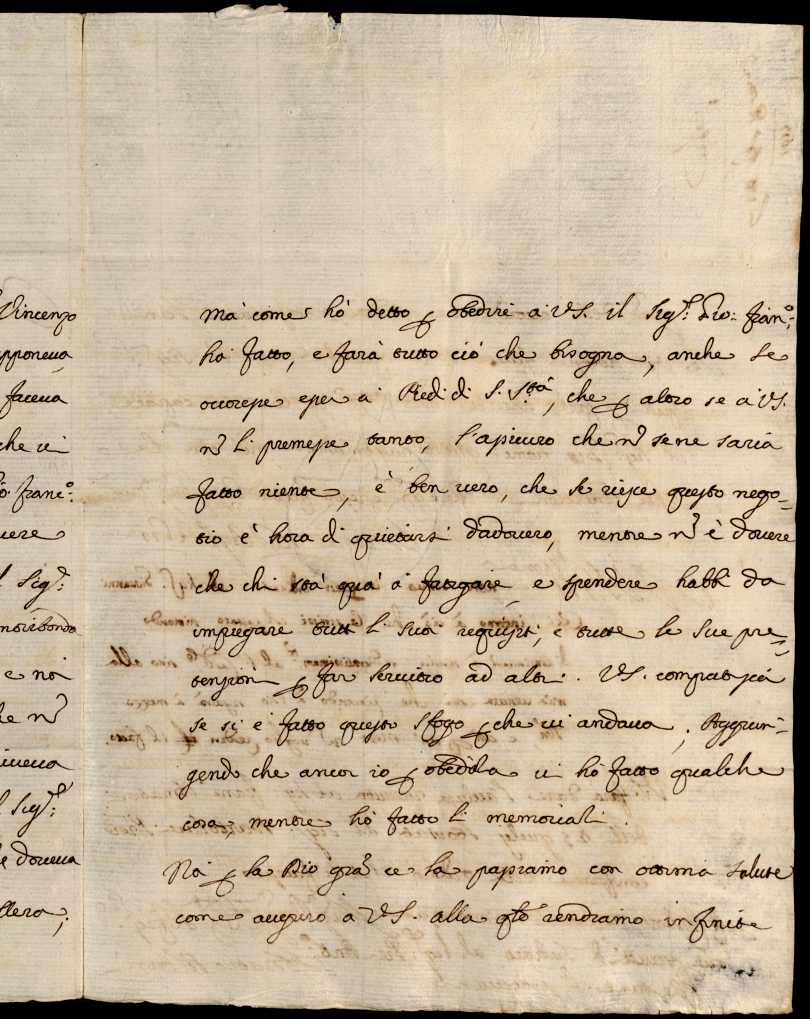 Vincenzo
pponeua
faceua
che ui
Franc.º:
uere
l Sig.r:
moribondo
e noi
he nº
iueua
l Sig.r:
e doueua
llera;
ma come hò detto p obedire à VS. il Sig.r: Gio: Fran.º:
hà fatto, e farà tutto ciò che bisogna, anche se
occoresse esser à Piedi di S. S.tà, che p altro se à VS.
nº li premesse tanto, l'assicuro che nº se ne saria
fatto niente, è ben uero, che se riesce questo nego=
tio è hora di quietarsi dadouero, mentre nº è douere
che chi stà quà à fatigare, e spendere habbi da
impiegare tutti li suoi requisiti, e tutte le sue pre=
tensioni p far seruitio ad altri. VS. compatisca
se si è fatto questo sfogo p che ui andaua, Aggiun=
gendo che ancor io p obedirla ui hò fatto qualche
cosa, mentre hò fatto li memoriali.
Noi p la Dio gra ce la passiamo con ottima salute
come auguro à VS. alla qle rendiamo infinite